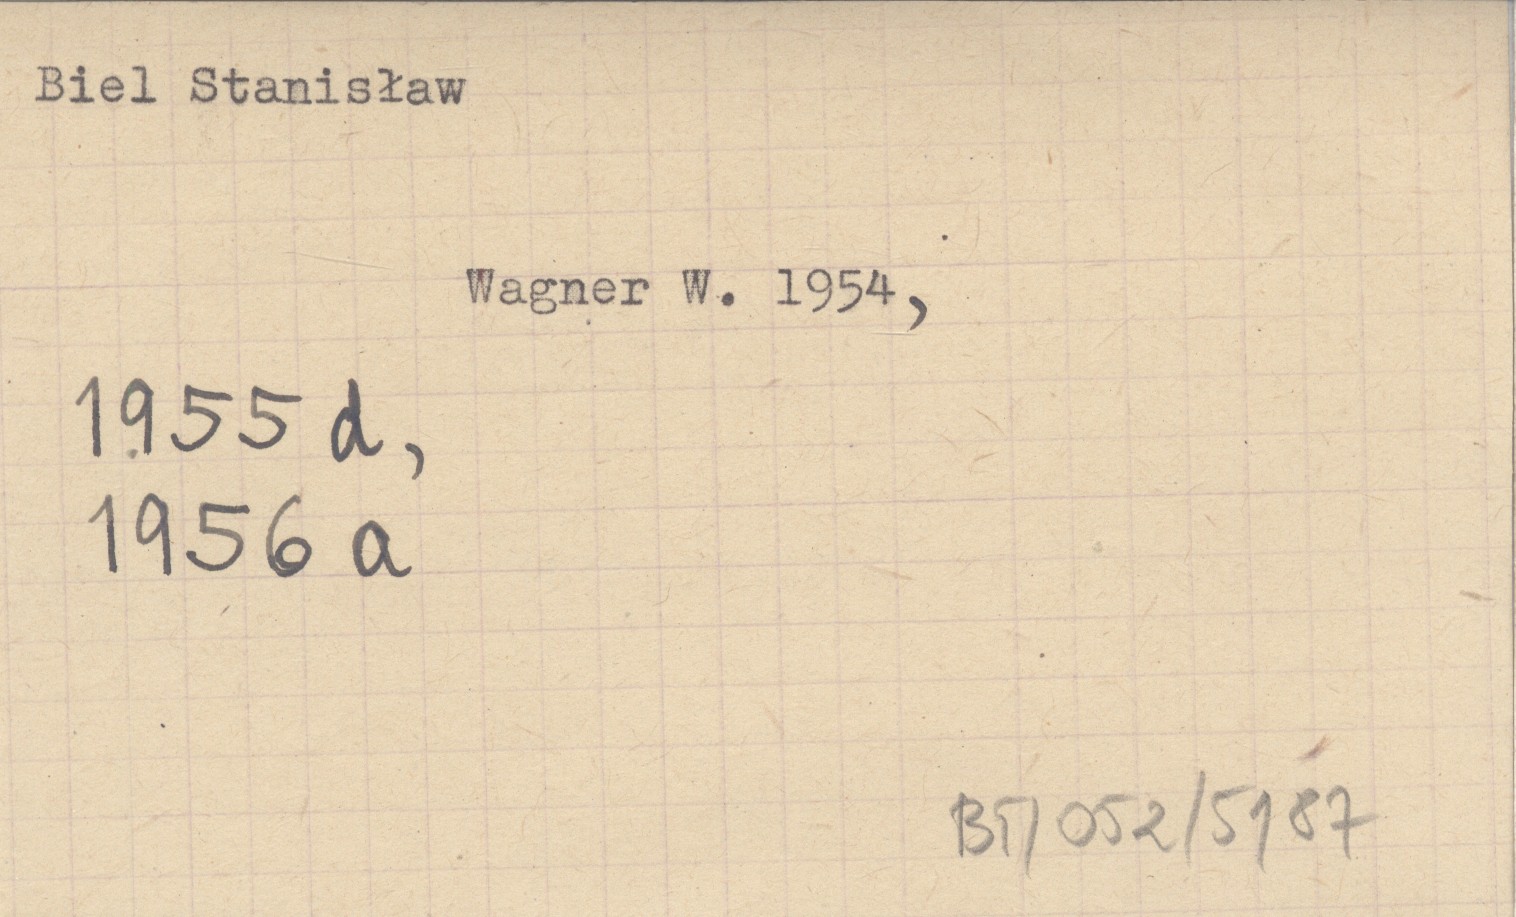 Biel Stanisław
Wagner W. 1954,
1955 d,
1956 a
BT/052/5187